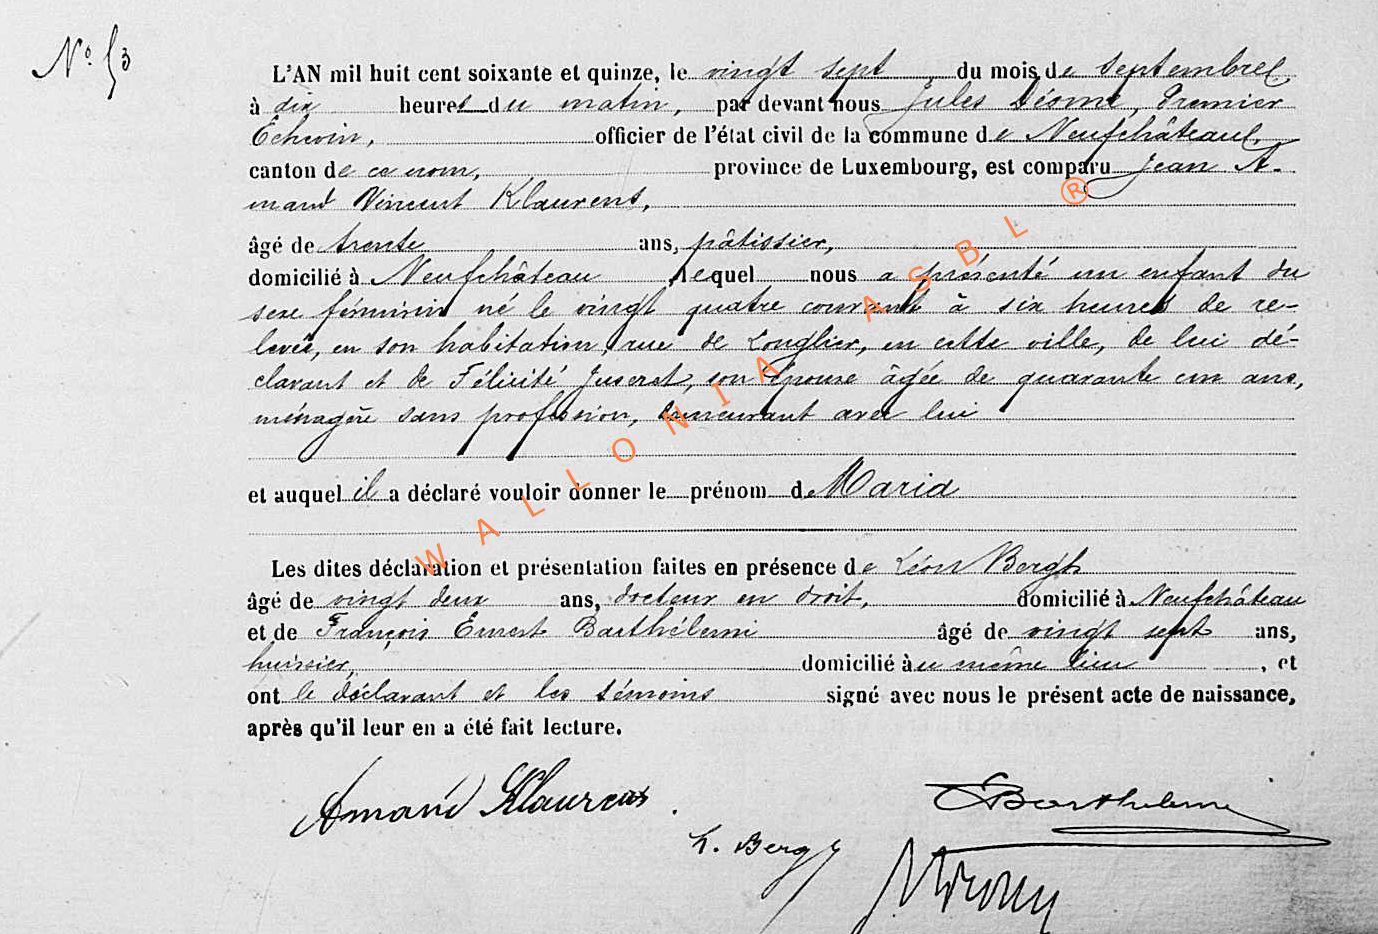 N° 53
L'AN mil huit cent soixante et quinze, le vingt sept du mois de Septembre
à dix heures du matin, par devant nous Jules Premier
Echevin, officier de l'état civil de la commune de Neufchâteau,
canton de ce nom, province de Luxembourg, est comparu Jean A-
mand Vincent Klaurens,
âgé de trente ans, pâtissier,
domicilié à Neufchâteau lequel nous a présenté un enfant du
sexe féminin né le vingt quatre courant à six heures de re-
levée, en son habitation, rue de Longlier, en cette ville, de lui dé-
clarant et de Félicité son épouse âgée de quarante un ans,
ménagère sans profession, demeurant avec lui
et auquel il a déclaré vouloir donner le prénom de Maria
Les dites déclaration et présentation faites en présence de Léon Bergh
âgé de vingt deux ans, docteur en droit, domicilié à Neufchâteau
et de François Ernest Barthélemi âgé de vingt sept ans,
huissier, domicilié au même lieu , et
ont le déclarant et les témoins signé avec nous le présent acte de naissance,
après qu'il leur en a été fait lecture.
Amand Klaurens.
EBarthelemi
L. Bergh
WALLONIA ASBL ®